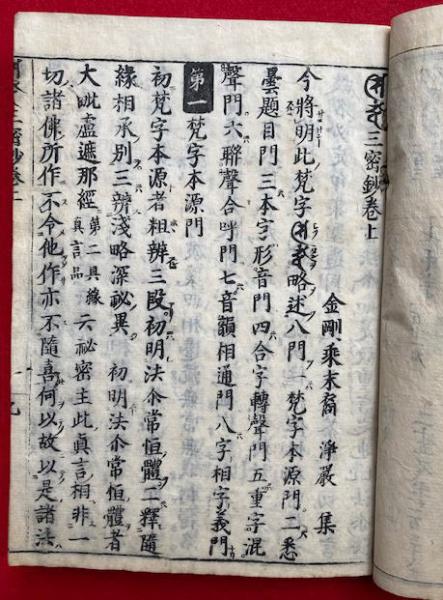 三密鈔卷上
金剛乘末裔 淨嚴 集
今將明此梵字略述八門一梵字本源門二悉
曇題目門三本字形音門四合字轉聲門五重字混
聲門六聯聲合呼門七音韻相通門八字相字義門
第一 梵字本源門
初梵字本源者粗辨三段初明法尒常恒體二釋隨
緣相承別三辨淺略深祕異 初明法尒常恒體者
大毗盧遮那經第二具緣真言品云祕密主此真言相非一
切諸佛所作不令他作亦不隨喜何以故以是諸法
三密鈔卷上